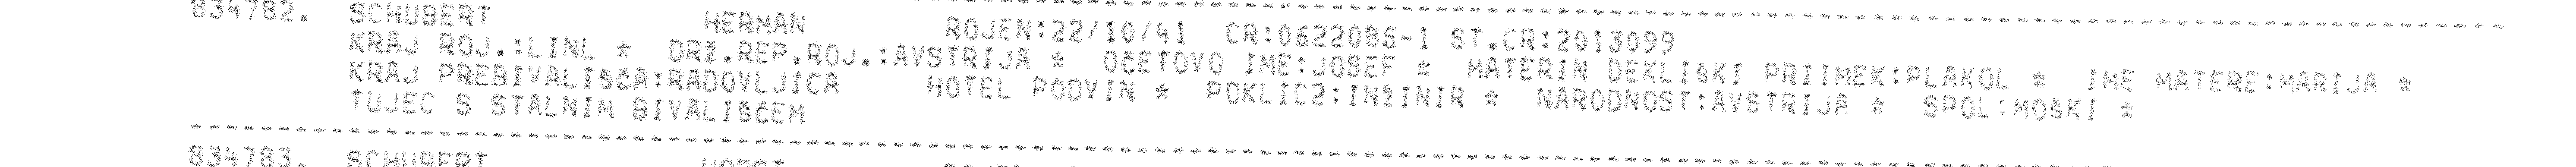 834782. SCHUBERT HERMAN ROJEN:22/10/41 CR:0622086-1 ST.CR:2013099
KRAJ ROJ.:LINL * DRŽ.REP.ROJ.:AVSTRIJA * OČETOVO IME:JOSEF * MATERIN DEKLIŠKI PRIIMEK:PLAKOL * IME MATERE:MARIJA *
KRAJ PREBIVALIŠČA:RADOVLJICA HOTEL PODVIN * POKLIC2:INŽINIR * NARODNOST:AVSTRIJA * SPOL:MOŠKI *
TUJEC S STALNIM BIVALIŠČEM
834783. SCHUBERT